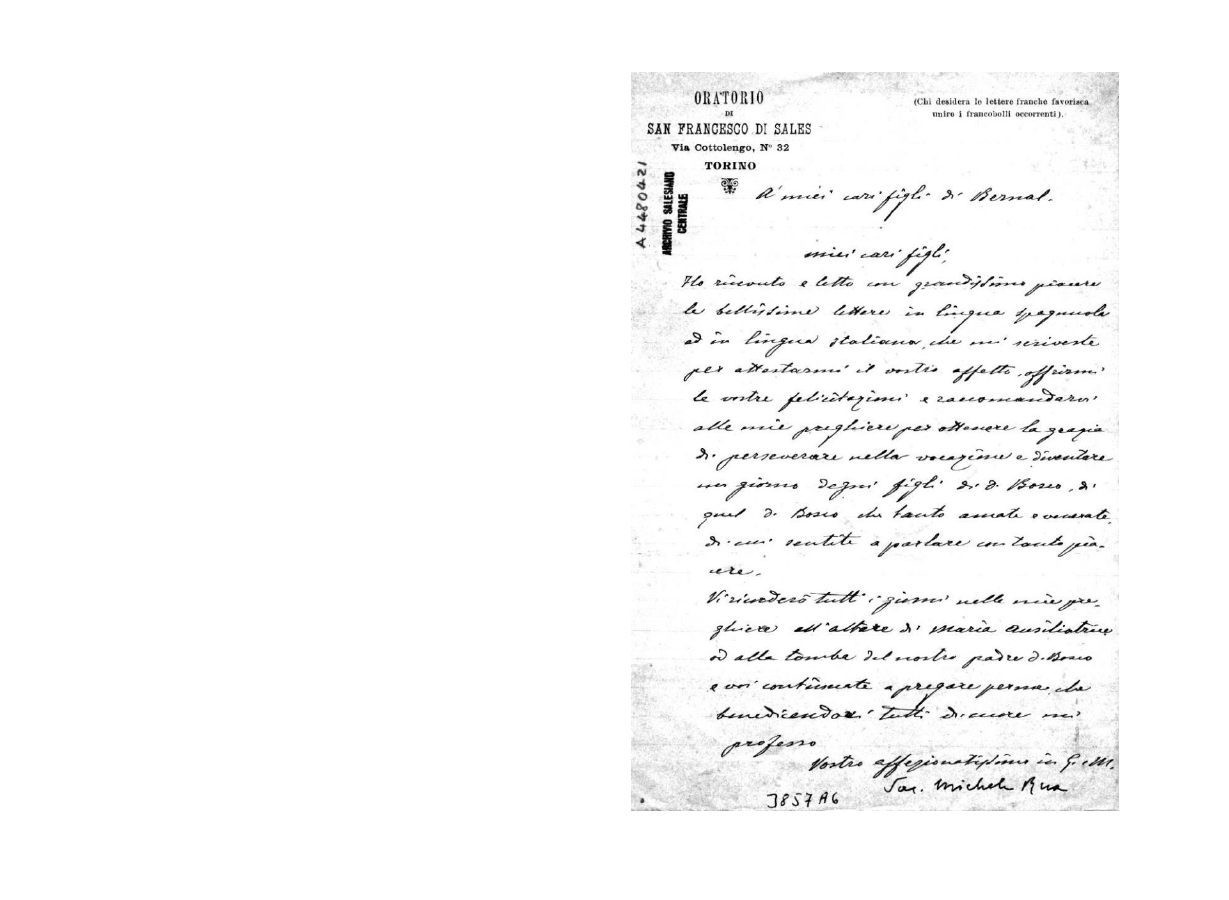 ORATORIO
DI
SAN FRANCESCO DI SALES
Via Cottolengo, N° 32
TORINO
(Chi desidera le lettere franche favorisca
unire i francobolli occorrenti).
A4480421
ARCHIVIO SALESIANO
CENTRALE
A' miei cari figli di Bernal.
miei cari figli,
Ho ricevuto e letto con grandissimo piacere
le bellissime lettere in lingua spagnuola
ed in lingua italiana, che mi scriveste
per attestarmi il vostro affetto, offrirmi
le vostre felicitazioni e raccomandarvi
alle mie preghiere per ottenere la grazia
di perseverare nella vocazione e diventare
un giorno degni figli di d. Bosco, di
quel d. Bosco che tanto amate e venerate,
di cui sentite a parlare con tanto pia-
cere.
Vi ricorderò tutti i giorni nelle mie pre-
ghiere all'altare di Maria Ausiliatrice
ed alla tomba del nostro padre d. Bosco
e voi continuate a pregare per me, che
benedicendovi tutti di cuore mi
professo
Vostro affezionatissimo in G. e M.
Sac. Michele Rua
3857A6